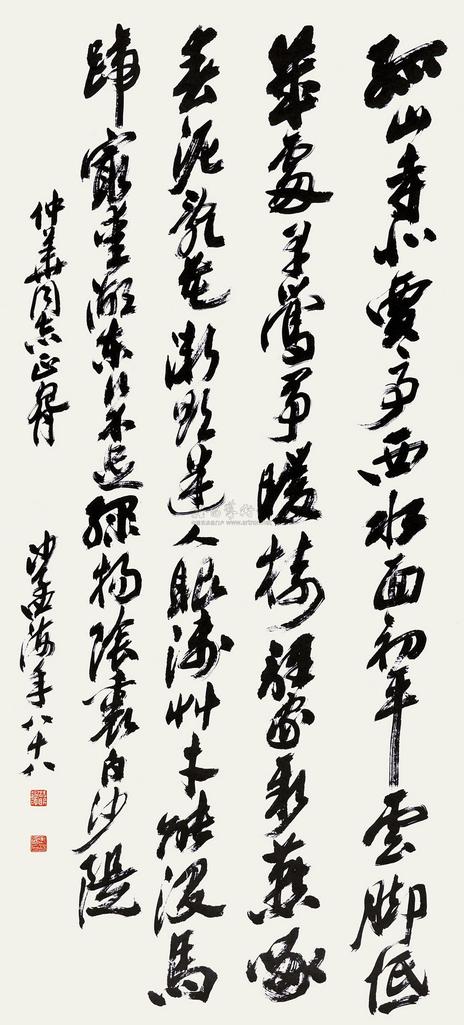 孤山寺北賈亭西水面初平雲脚低
幾處早鶯爭暖樹誰家新燕啄
春泥亂花漸欲迷人眼淺艸才能沒馬
蹄最愛湖東行不足綠楊陰裏白沙隄
仲華同志正
沙孟海年八十八